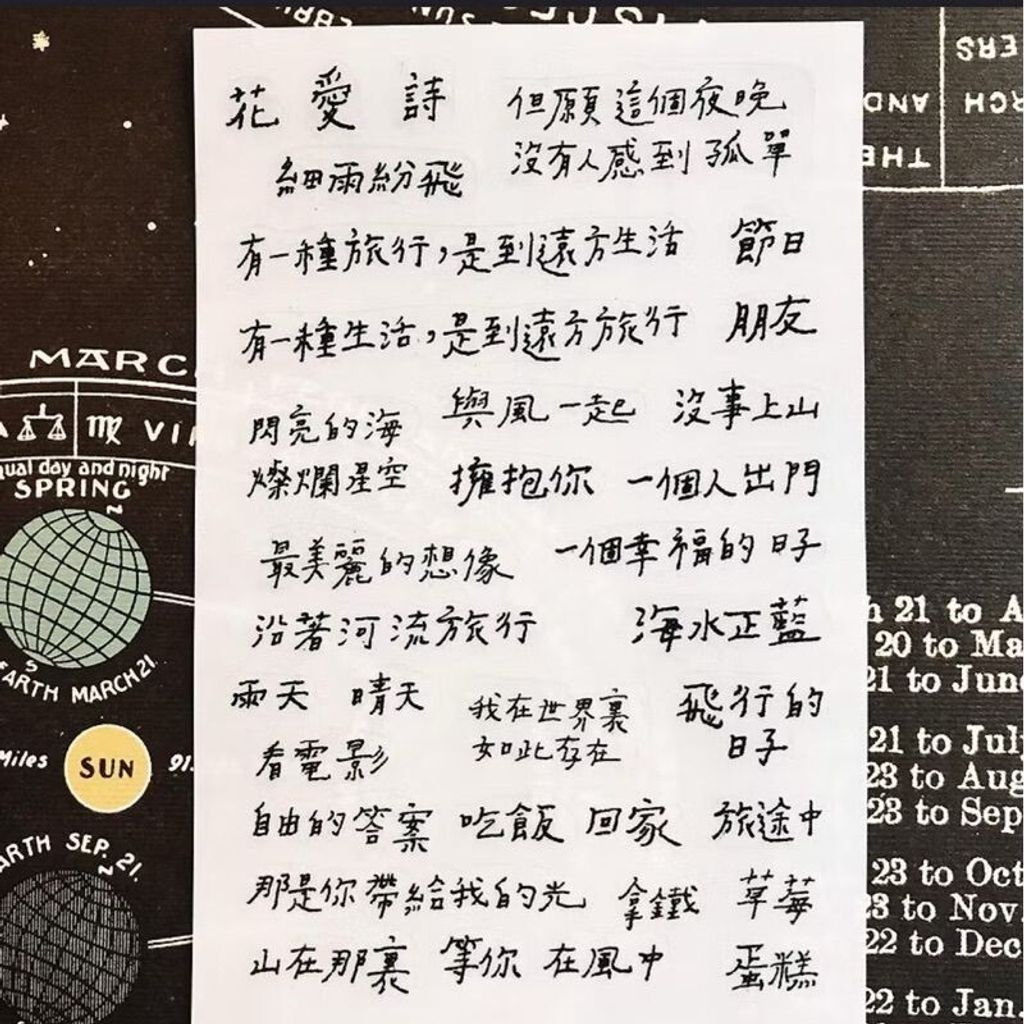 花 愛 詩 但願這個夜晚
沒有人感到孤單
細雨紛飛
有一種旅行，是到遠方生活 節日
有一種生活，是到遠方旅行 朋友
與風一起 沒事上山
閃亮的海
燦爛星空 擁抱你 一個人出門
最美麗的想像 一個幸福的日子
沿著河流旅行 海水正藍
雨天 晴天 我在世界裏 飛行的
看電影 如此存在 日子
自由的答案 吃飯 回家 旅途中
那是你帶給我的光 拿鐵 草莓
山在那裏 等你 在風中 蛋糕
SUN
ERS
RCH
AND
THE
MARC
VI
ual day and night
SPRING
EARTH MARCH 21
Miles SUN 91
ARTH SEP. 21.
h 21 to A
20 to Ma
21 to June
21 to July
23 to Aug
23 to Sep
23 to Oct
23 to Nov
22 to Dec
22 to Jan.